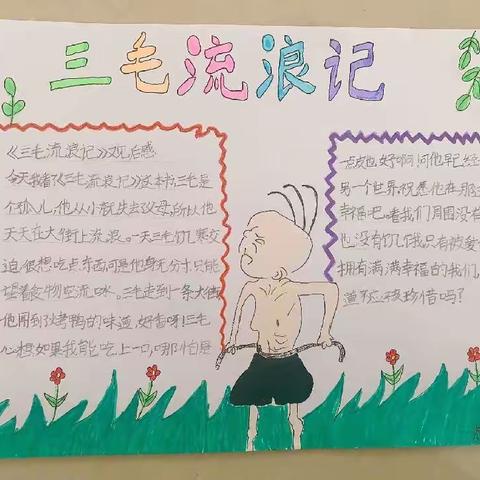 三毛流浪记
《三毛流浪记》观后感
今天我看了《三毛流浪记》这本书,三毛是
个孤儿,他从小就失去父母,所以他
天天在大街上流浪。一天三毛饥寒交
迫,很想吃点东西,可是他身无分寸,只能
望着食物空流口水。三毛走到一条大街
他闻到烤鸭的味道,好香呀!三毛
心想如果我能吃上一口,哪怕是
一点皮也好啊!可他早已经
另一个世界,祝愿他在那
幸福吧。看我们周围没有
也没有饥饿,只有被爱
拥有满满幸福的我们,
道不应该珍惜吗?